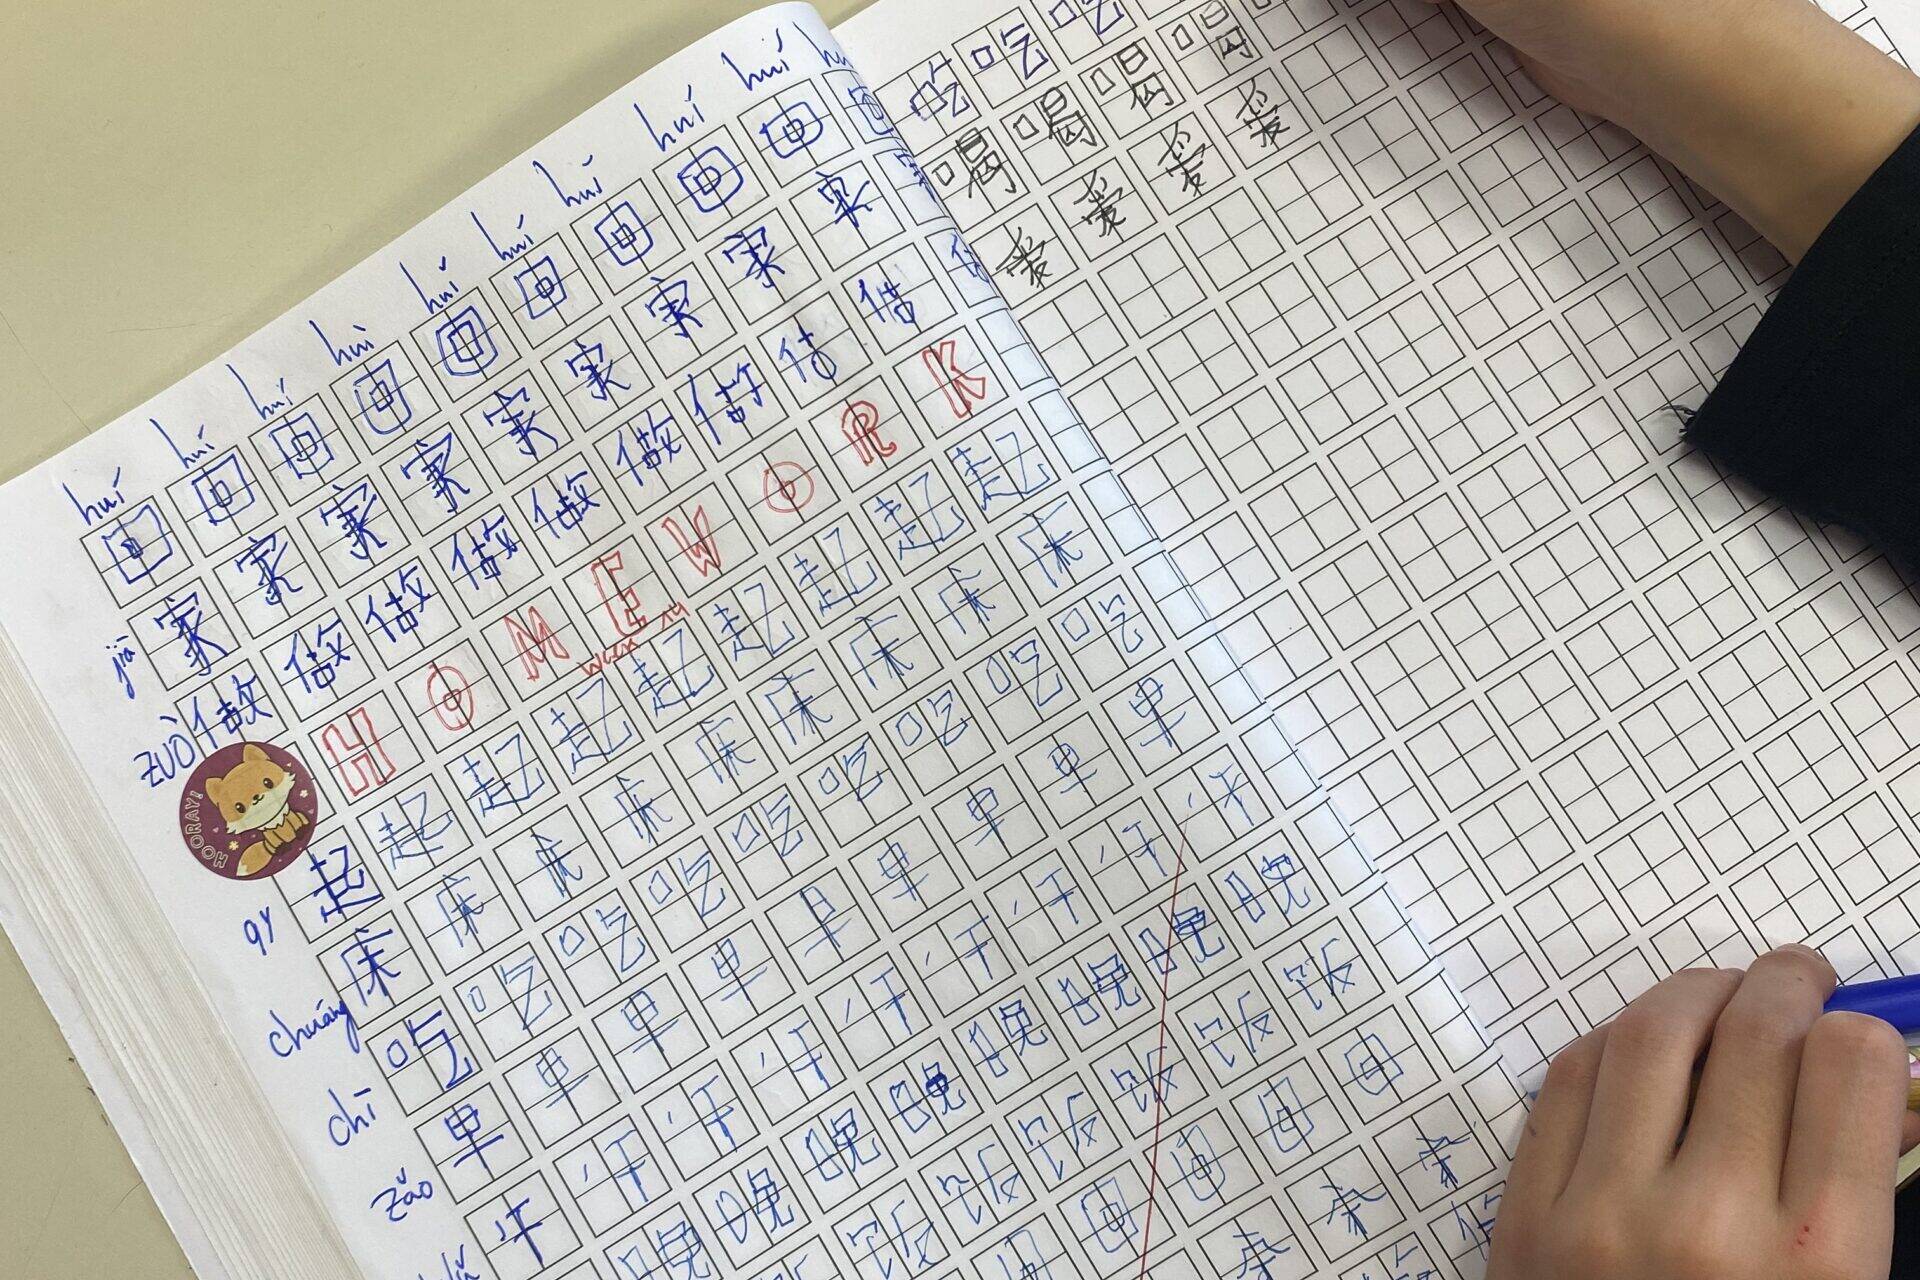 huí huí huí huì huǐ huí huí huí huí
回 回 回 回 回 回 回 回 回 回
jiā 家 家 家 家 家 家 家 家 家
zuò 做 做 做 做 做 做 做 做 做
HOORAY!
H O M E W O R K
week
qǐ 起 起 起 起 起 起 起 起 起
chuáng 床 床 床 床 床 床 床 床 床
chī 吃 吃 吃 吃 吃 吃 吃 吃 吃
zǎo 早 早 早 早 早 早 早 早 早
午 午 午 午 午 午 午 午 午
晚 晚 晚 晚 晚 晚 晚 晚
饭 饭 饭 饭 饭 饭
回 回 回 回 回
家 家 家
吃 吃 吃
喝 喝 喝 喝
爱 爱 爱 爱